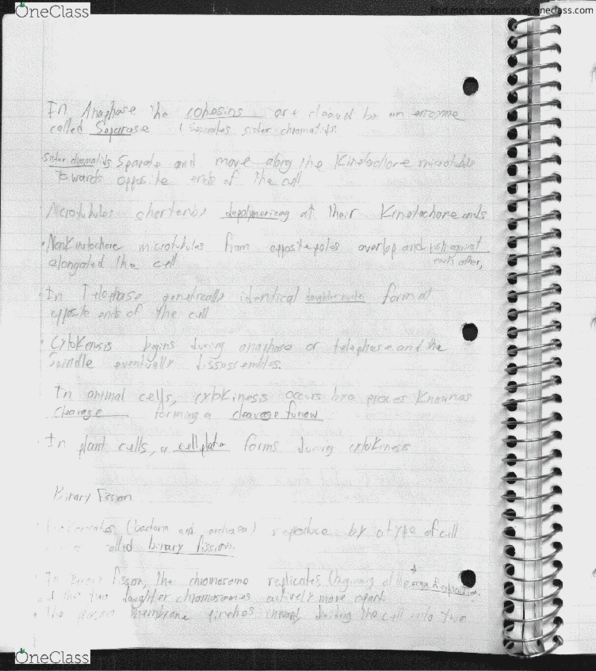 OneClass
find more resources at oneclass.com
In Anaphase the cohesins are cleaved by an enzyme
called Separase (Separates sister chromatids
Sister chromatids Separate and move along the Kinetochore microtubules
towards opposite ends of the cell
Microtubules shorten by depolymerizing at their Kinetochore ends
• NonKinetochore microtubules from opposite poles overlap and push against
each other,
elongated the cell
• In Telophase genetically identical daughter nuclei form at
opposite ends of the cell
• Cytokinesis begins during anaphase or telophase and the
Spindle eventually disassembles.
In animal cells, cytokinesis occurs by a process Known as
cleavage forming a cleavage furrow
• In plant cells, a cell plate forms during cytokinesis
Binary Fission
(bacteria and archaea) reproduce by a type of cell
called binary fission.
• In Binary fission, the chromosome replicates (beginning at the origin of replication,
and the two daughter chromosomes actively move apart
• The plasma membrane pinches inward, dividing the cell into two
OneClass
OneClass
find more resources at oneclass.com